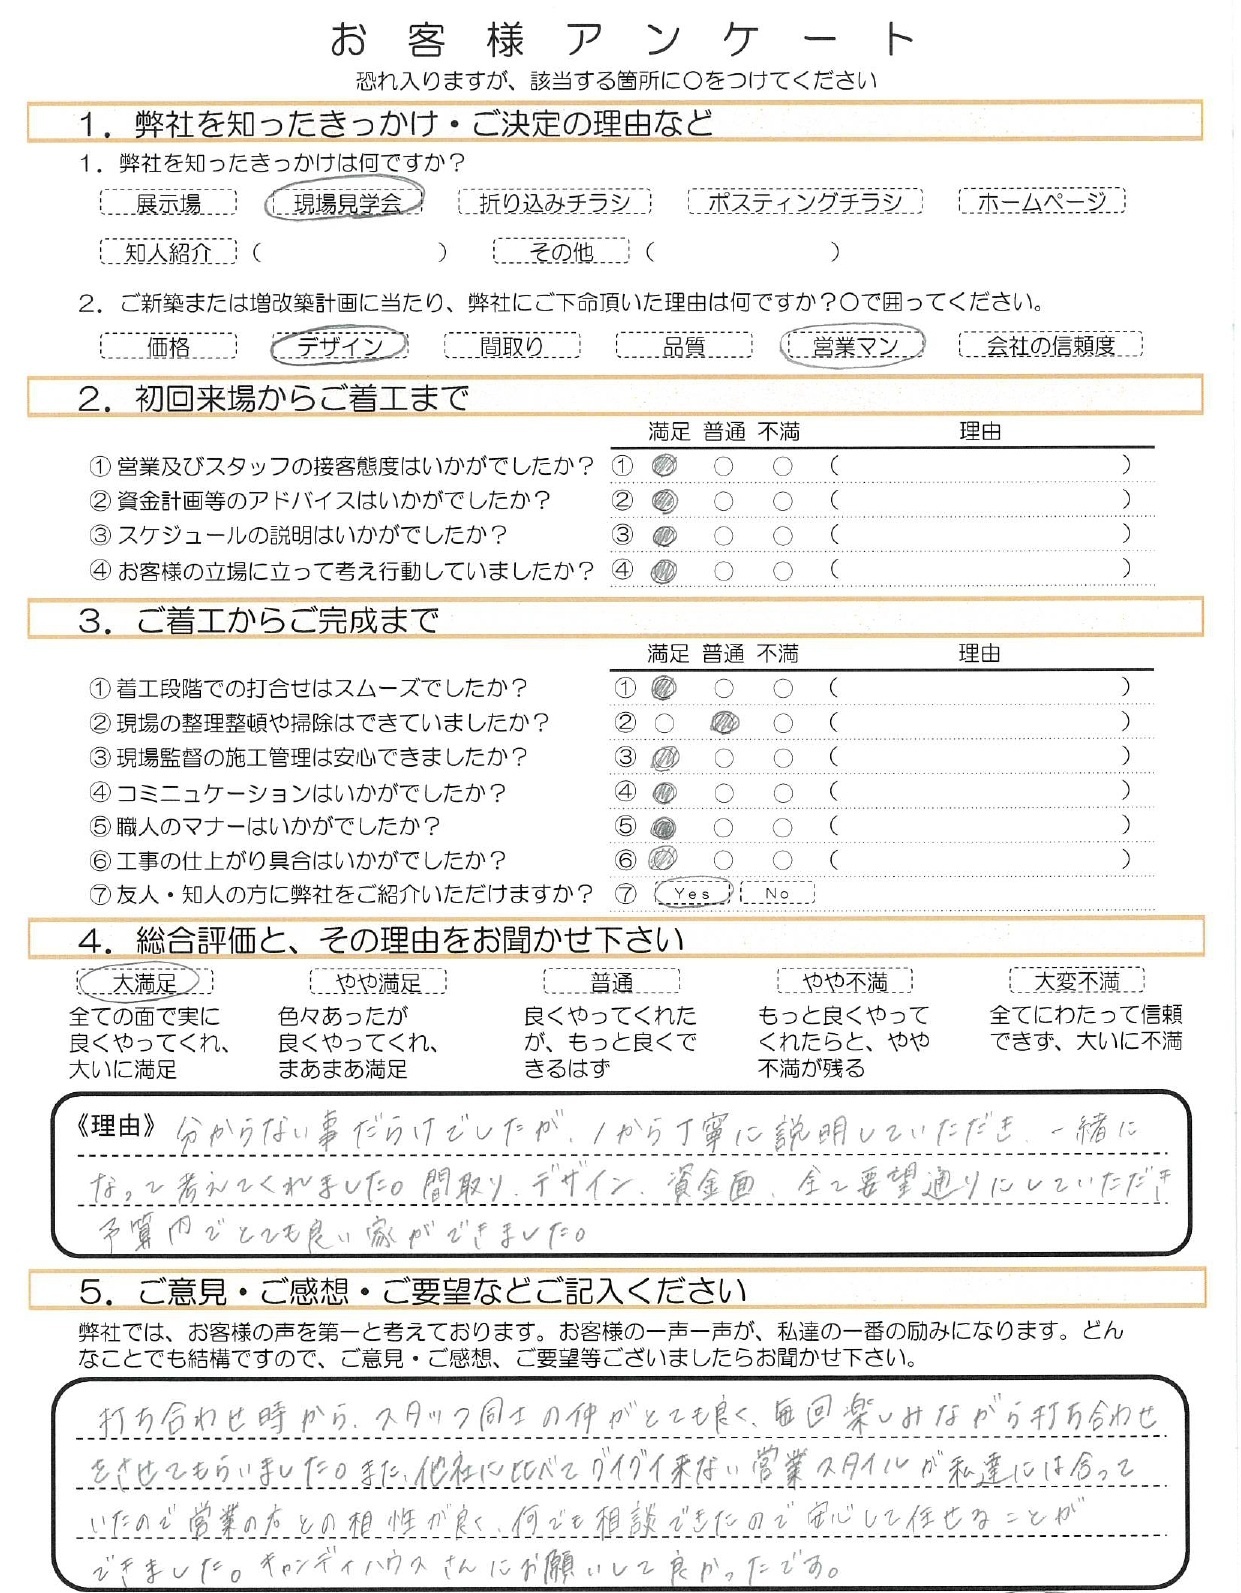 お客様アンケート
恐れ入りますが、該当する箇所に〇をつけてください
1．弊社を知ったきっかけ・ご決定の理由など
1．弊社を知ったきっかけは何ですか？
展示場 現場見学会 折り込みチラシ ポスティングチラシ ホームページ
知人紹介（ ） その他（ ）
2．ご新築または増改築計画に当たり、弊社にご下命頂いた理由は何ですか？〇で囲ってください。
価格 デザイン 間取り 品質 営業マン 会社の信頼度
2．初回来場からご着工まで
満足 普通 不満 理由
①営業及びスタッフの接客態度はいかがでしたか？ ① ○ ○ （ ）
②資金計画等のアドバイスはいかがでしたか？ ② ○ ○ （ ）
③スケジュールの説明はいかがでしたか？ ③ ○ ○ （ ）
④お客様の立場に立って考え行動していましたか？ ④ ○ ○ （ ）
3．ご着工からご完成まで
満足 普通 不満 理由
①着工段階での打合せはスムーズでしたか？ ① ○ ○ （ ）
②現場の整理整頓や掃除はできていましたか？ ② ○ ○ （ ）
③現場監督の施工管理は安心できましたか？ ③ ○ ○ （ ）
④コミニュケーションはいかがでしたか？ ④ ○ ○ （ ）
⑤職人のマナーはいかがでしたか？ ⑤ ○ ○ （ ）
⑥工事の仕上がり具合はいかがでしたか？ ⑥ ○ ○ （ ）
⑦友人・知人の方に弊社をご紹介いただけますか？ ⑦ Yes No
4．総合評価と、その理由をお聞かせ下さい
大満足 やや満足 普通 やや不満 大変不満
全ての面で実に 色々あったが 良くやってくれた もっと良くやって 全てにわたって信頼
良くやってくれ、 良くやってくれ、 が、もっと良くで くれたらと、やや できず、大いに不満
大いに満足 まあまあ満足 きるはず 不満が残る
《理由》分からない事だらけでしたが、1から丁寧に説明していただき、一緒に
なって考えてくれました。間取り、デザイン、資金面、全て要望通りにしていただき
予算内でとても良い家ができました。
5．ご意見・ご感想・ご要望などご記入ください
弊社では、お客様の声を第一と考えております。お客様の一声一声が、私達の一番の励みになります。どん
なことでも結構ですので、ご意見・ご感想、ご要望等ございましたらお聞かせ下さい。
打ち合わせ時から、スタッフ同士の仲がとても良く、毎回楽しみながら打ち合わせ
をさせてもらいました。また、他社に比べてグイグイ来ない営業スタイルが私達には合って
いたので営業の方との相性が良く、何でも相談できたので安心して任せることが
できました。キャンディハウスさんにお願いして良かったです。